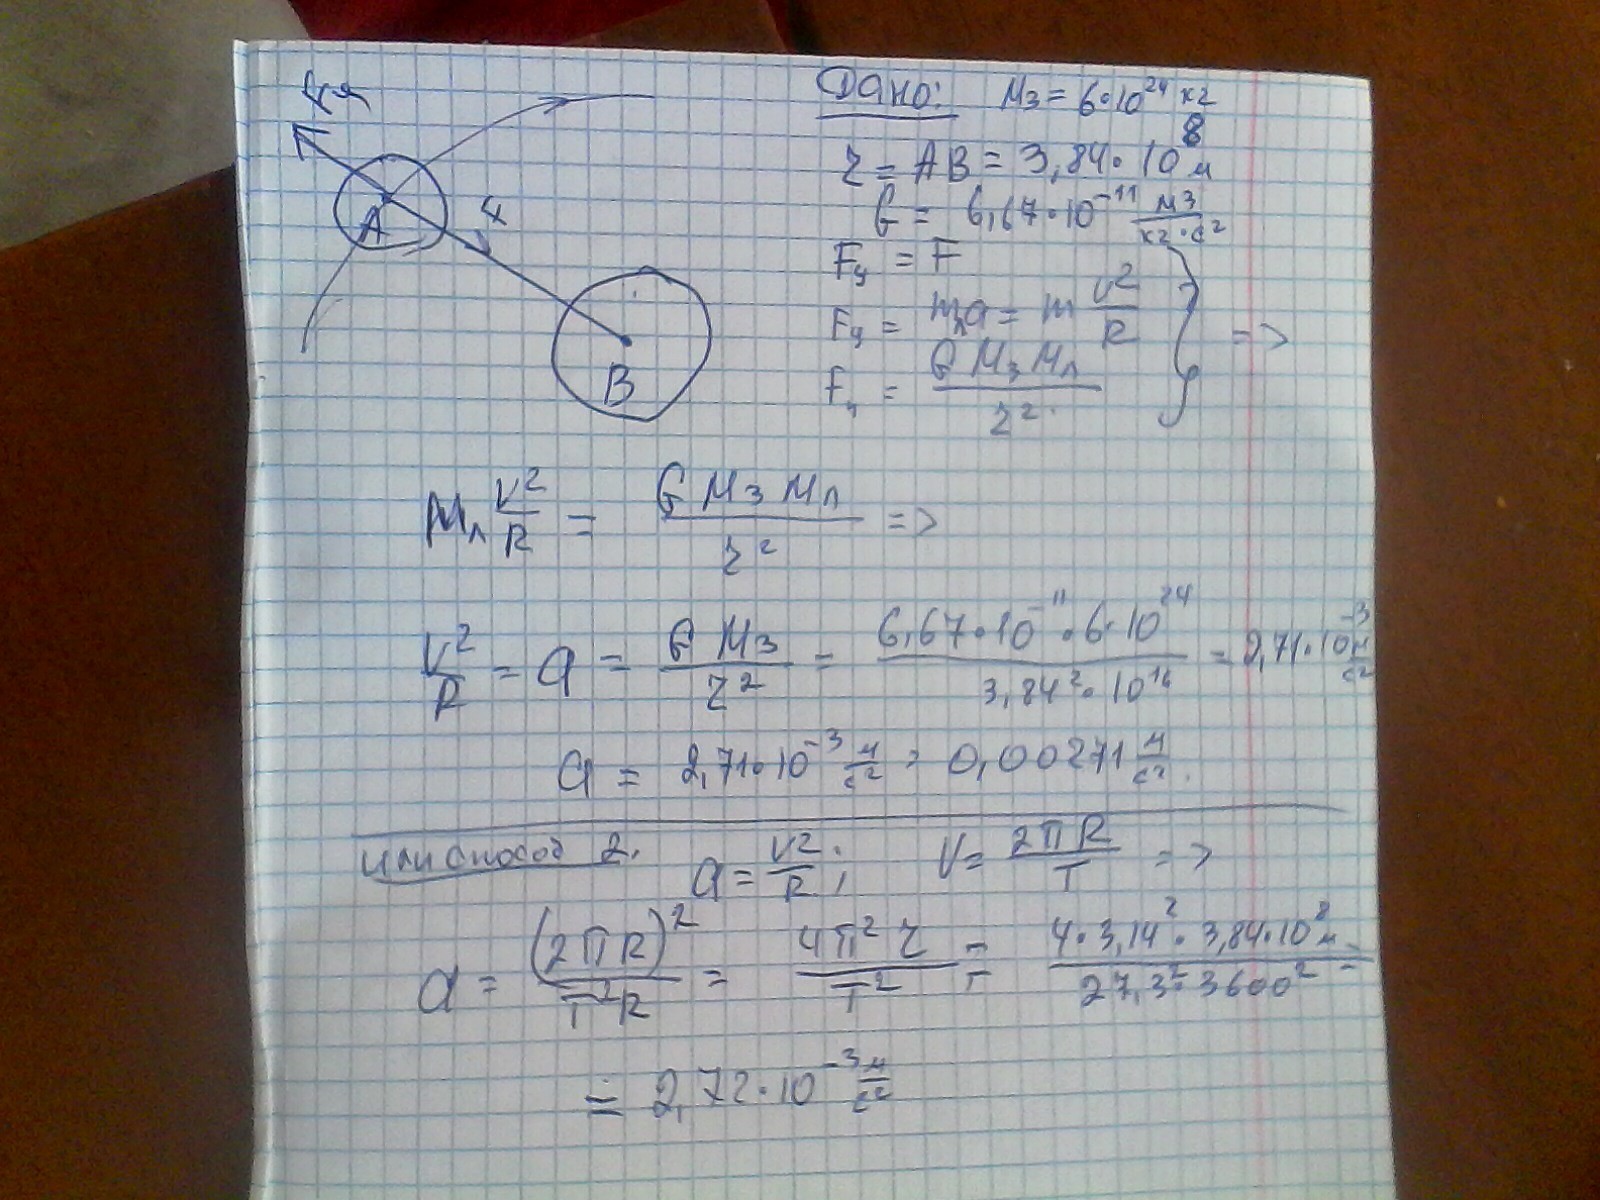 Дано: Mз = 6·10²⁴ кг
r = AB = 3,84·10⁸ м
G = 6,67·10⁻¹¹ м³/кг·с²
A
B
Fц = F
Fц = mлa = m v²/R
Fц = G Mз Mл / r² } =>
Mл v²/R = G Mз Mл / r² =>
v²/R = a = G Mз / r² = 6,67·10⁻¹¹·6·10²⁴ / 3,84²·10¹⁶ = 2,71·10⁻³ м/с²
a = 2,71·10⁻³ м/с² = 0,00271 м/с².
или способ 2. a = v²/R; V = 2πR/T =>
a = (2πR)²/T²R = 4π²r/T² = 4·3,14²·3,84·10⁸ м / 27,3²·3600² =
= 2,72·10⁻³ м/с²